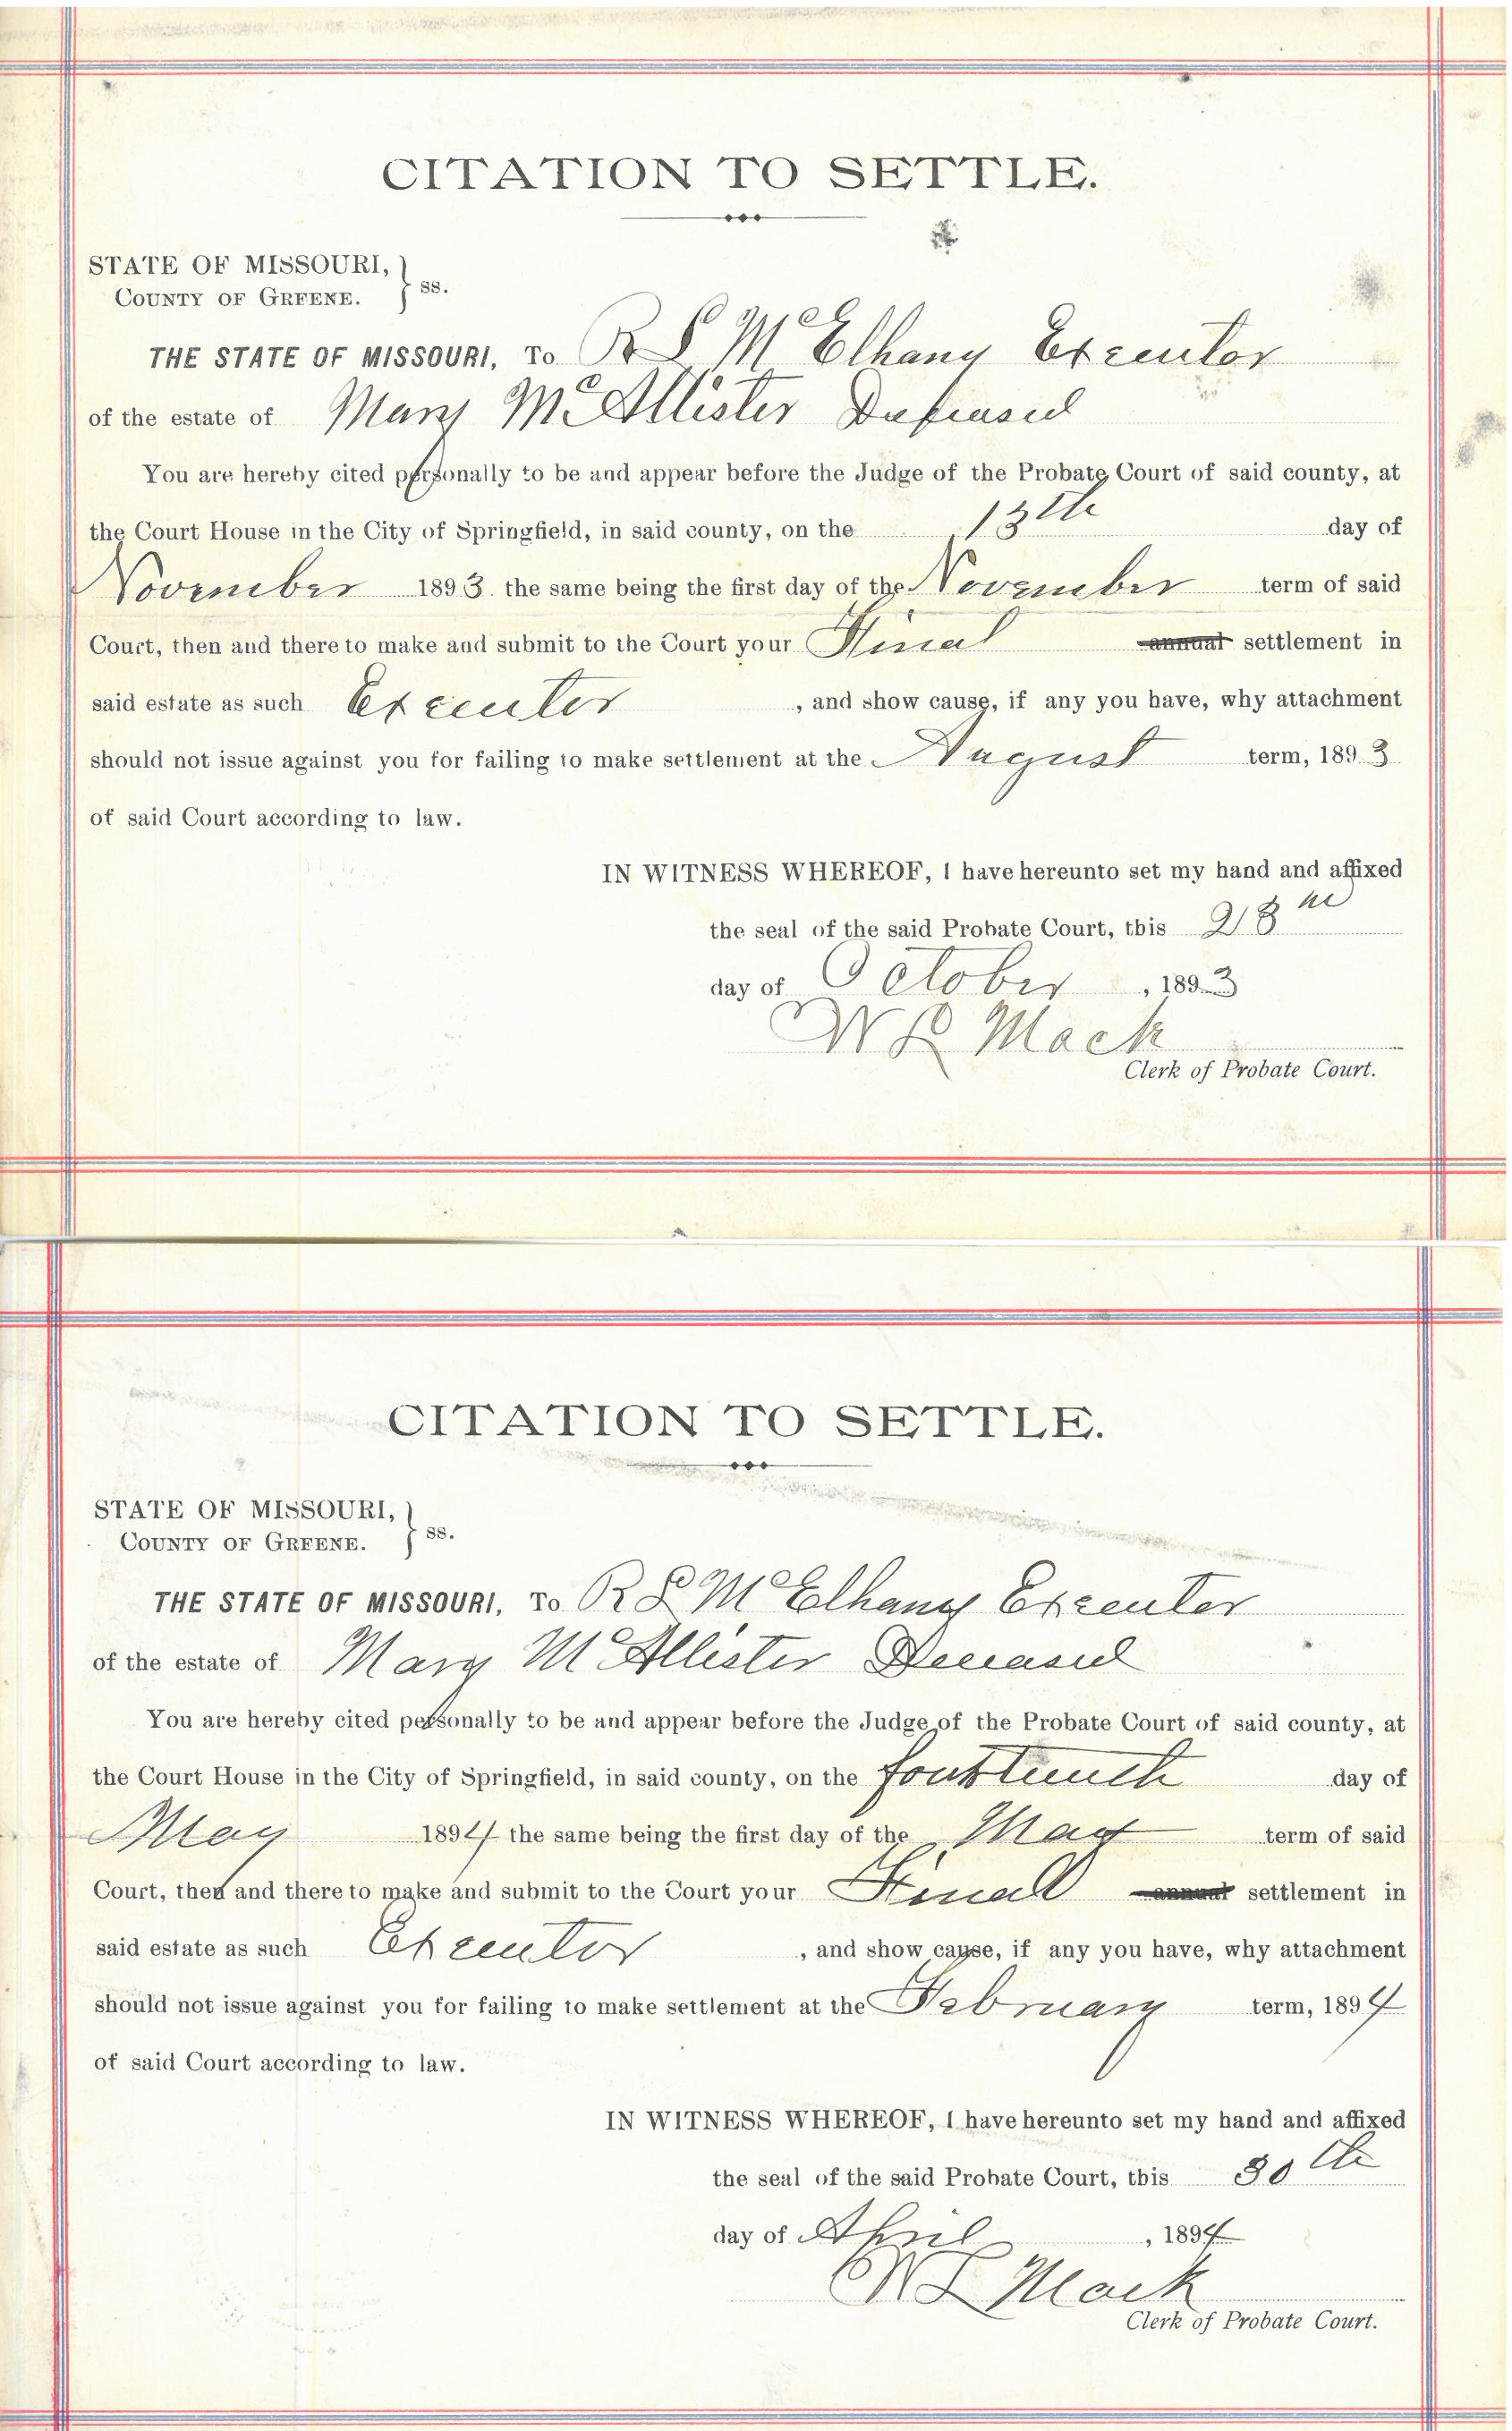 CITATION TO SETTLE.
STATE OF MISSOURI,
COUNTY OF GREENE. } ss.
THE STATE OF MISSOURI, To R L McElhany Executor
of the estate of Mary McAllister Deceased
You are hereby cited personally to be and appear before the Judge of the Probate Court of said county, at
the Court House in the City of Springfield, in said county, on the 13th day of
November 1893 the same being the first day of the November term of said
Court, then and there to make and submit to the Court your Final annual settlement in
said estate as such Executor , and show cause, if any you have, why attachment
should not issue against you for failing to make settlement at the August term, 1893
of said Court according to law.
IN WITNESS WHEREOF, I have hereunto set my hand and affixed
the seal of the said Probate Court, this 28th
day of October , 1893
W L Mack
Clerk of Probate Court.
CITATION TO SETTLE.
STATE OF MISSOURI,
COUNTY OF GREENE. } ss.
THE STATE OF MISSOURI, To R L McElhany Executor
of the estate of Mary McAllister Deceased
You are hereby cited personally to be and appear before the Judge of the Probate Court of said county, at
the Court House in the City of Springfield, in said county, on the fourteenth day of
May 1894 the same being the first day of the May term of said
Court, then and there to make and submit to the Court your Final annual settlement in
said estate as such Executor , and show cause, if any you have, why attachment
should not issue against you for failing to make settlement at the February term, 1894
of said Court according to law.
IN WITNESS WHEREOF, I have hereunto set my hand and affixed
the seal of the said Probate Court, this 30th
day of April , 1894
W L Mack
Clerk of Probate Court.